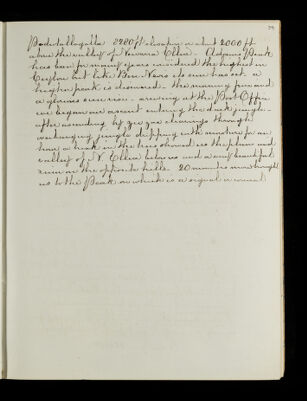 Pedrotallagalla 8280 ft elevation or about 2000 ft
above the valley of Newara Ellia. Adams Peak
has been for many years considered the highest in
Ceylon but like Ben Nevis its sun has set. a
higher peak is discovered. the morning fine and
a glorious sun rise. arriving at the Post Office
we began our ascent entering the dark jungle
after ascending by zig zag clearings through
overhanging jungle dripping with moisture for an
hour a break in the trees showed us the plain and
valley of N. Ellia below us and a most beautiful
view on the opposite hills. 20 minutes more brought
us to the Peak on which is a signal